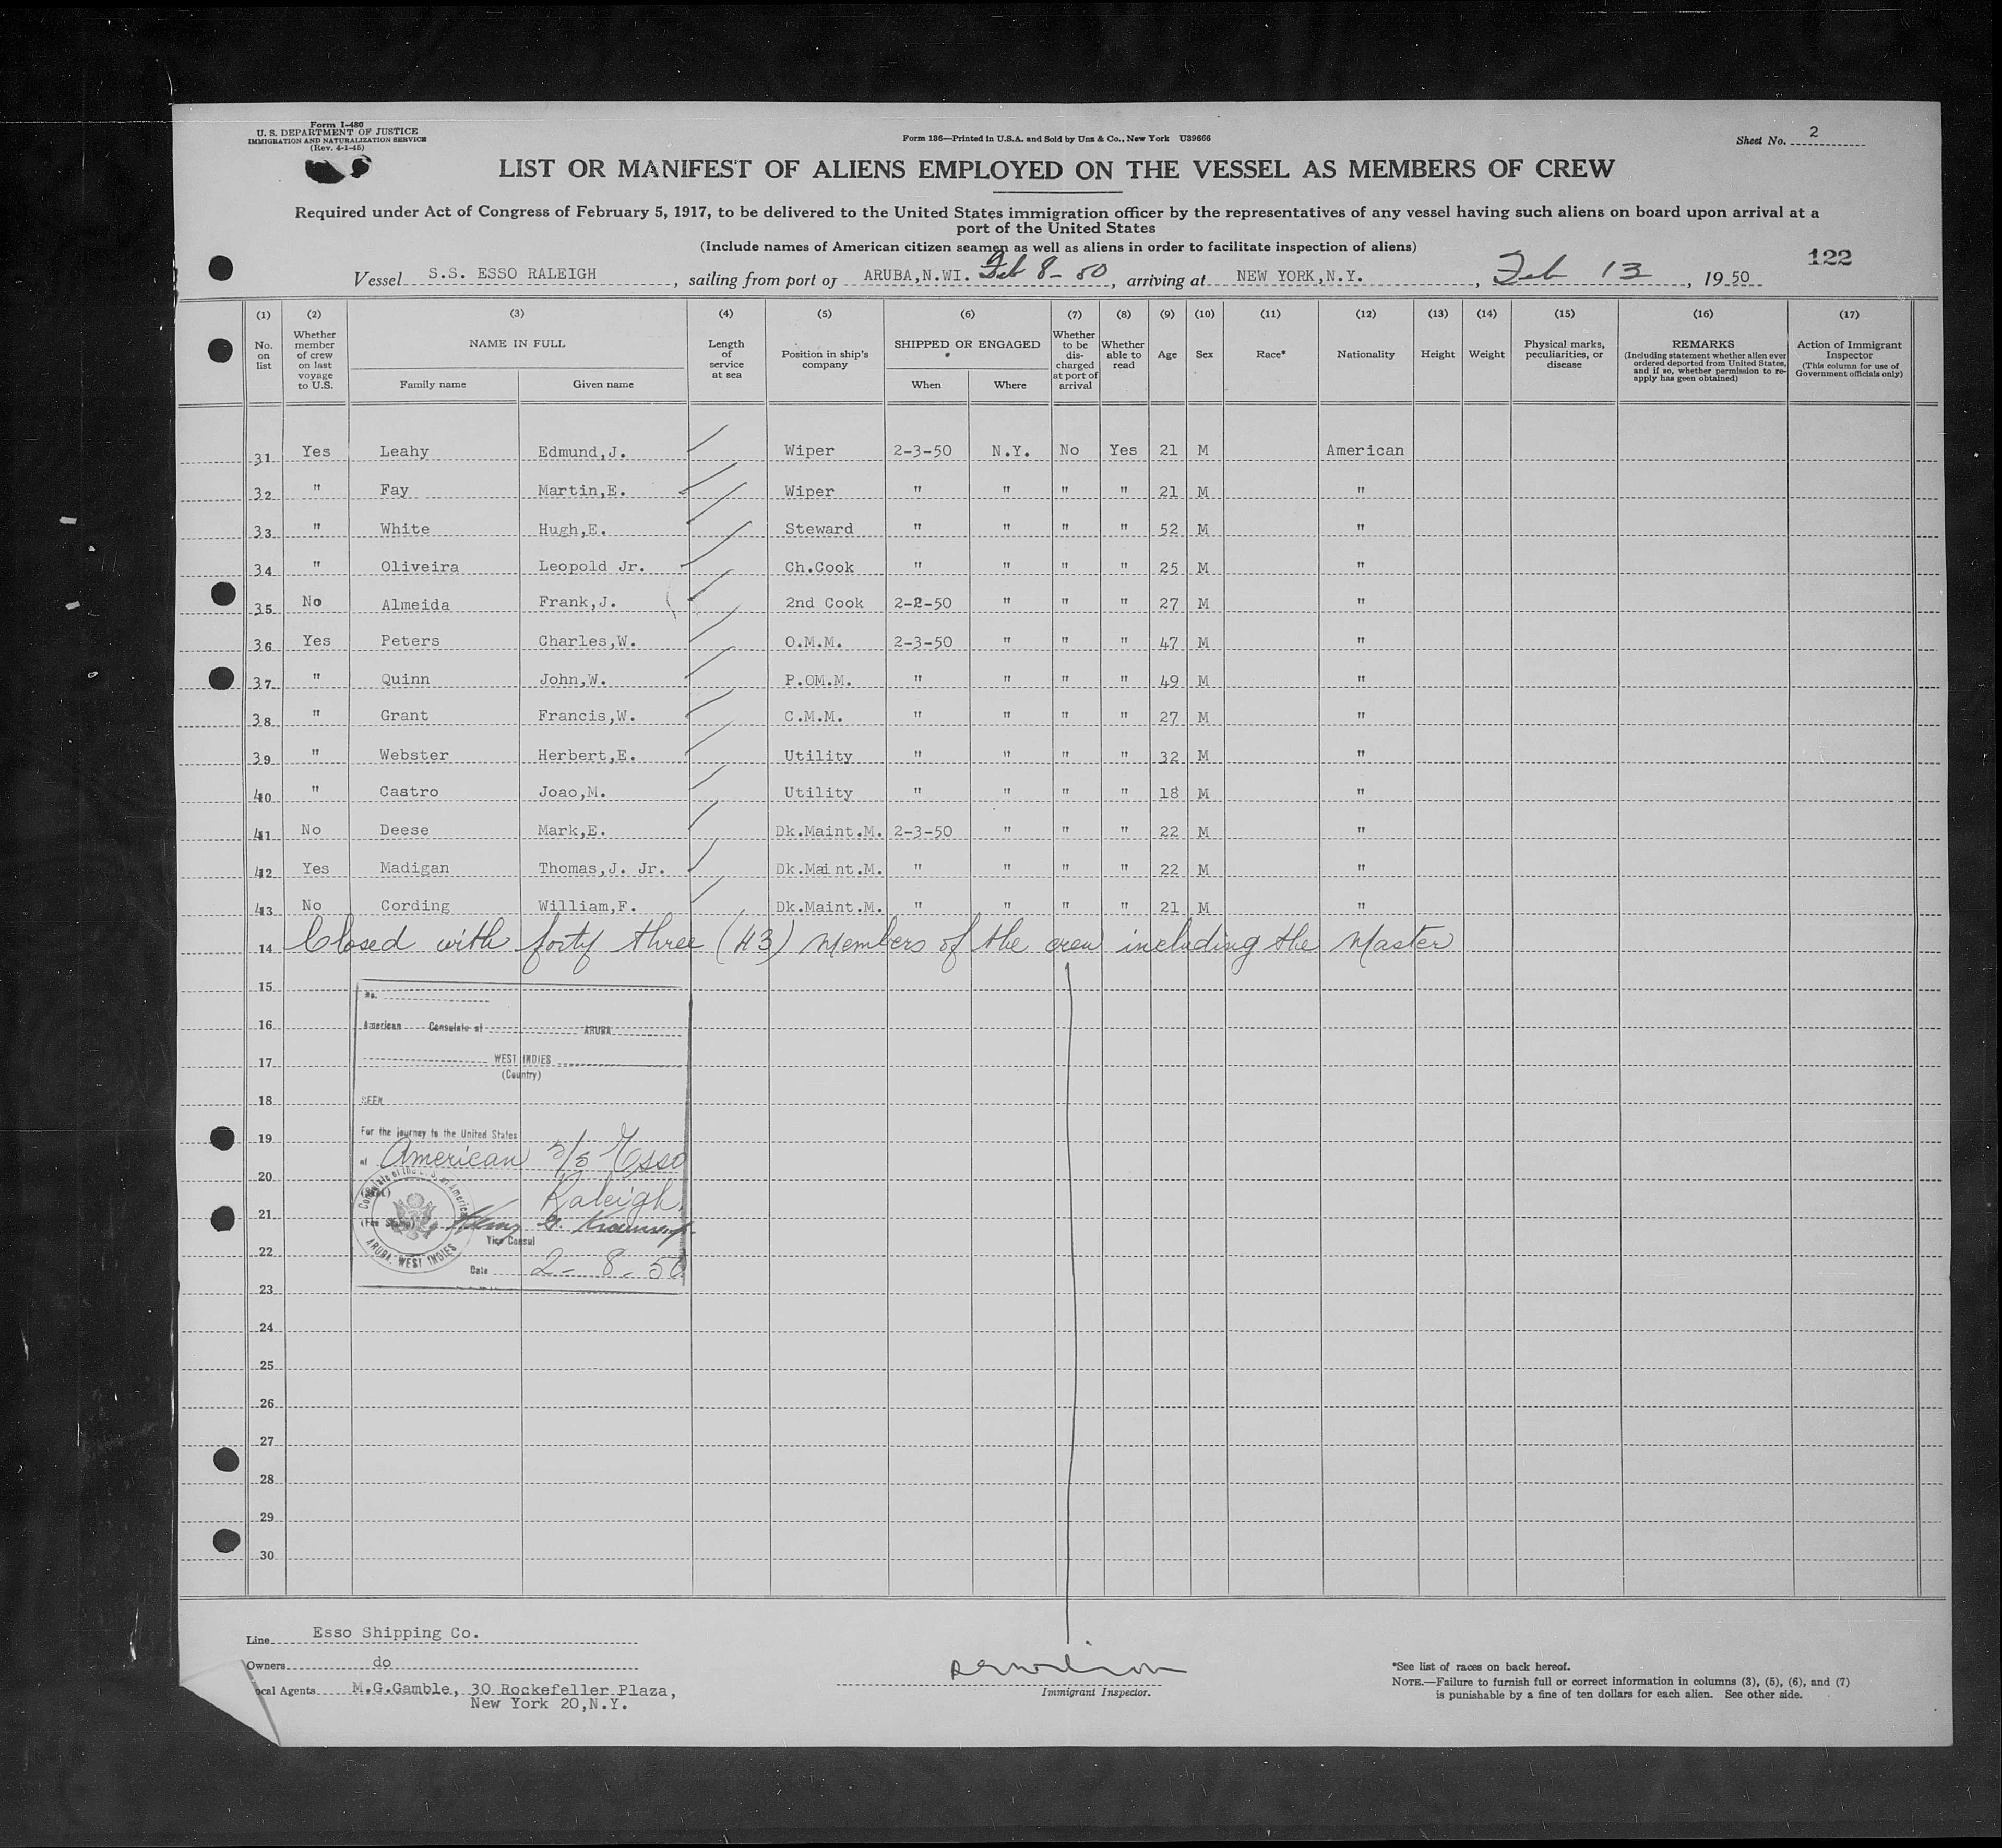 Form I-480
U. S. DEPARTMENT OF JUSTICE
IMMIGRATION AND NATURALIZATION SERVICE
(Rev. 4-1-45)
Form 186—Printed in U.S.A. and Sold by Unz & Co., New York U39666
Sheet No. 2
LIST OR MANIFEST OF ALIENS EMPLOYED ON THE VESSEL AS MEMBERS OF CREW
Required under Act of Congress of February 5, 1917, to be delivered to the United States immigration officer by the representatives of any vessel having such aliens on board upon arrival at a
port of the United States
(Include names of American citizen seamen as well as aliens in order to facilitate inspection of aliens)
122
Vessel S.S. ESSO RALEIGH, sailing from port of ARUBA,N.WI. Feb 8-50, arriving at NEW YORK,N.Y., Feb 13, 1950
(1) No. on list
(2) Whether member of crew on last voyage to U.S.
(3) NAME IN FULL Family name Given name
(4) Length of service at sea
(5) Position in ship's company
(6) SHIPPED OR ENGAGED When Where
(7) Whether to be discharged at port of arrival
(8) Whether able to read
(9) Age
(10) Sex
(11) Race*
(12) Nationality
(13) Height
(14) Weight
(15) Physical marks, peculiarities, or disease
(16) REMARKS (Including statement whether alien ever ordered deported from United States, and if so, whether permission to re-apply has geen obtained)
(17) Action of Immigrant Inspector (This column for use of Government officials only)
31 Yes Leahy Edmund,J. Wiper 2-3-50 N.Y. No Yes 21 M American
32 " Fay Martin,E. Wiper " " " " 21 M "
33 " White Hugh,E. Steward " " " " 52 M "
34 " Oliveira Leopold Jr. Ch.Cook " " " " 25 M "
35 No Almeida Frank,J. 2nd Cook 2-2-50 " " " 27 M "
36 Yes Peters Charles,W. O.M.M. 2-3-50 " " " 47 M "
37 " Quinn John,W. P.OM.M. " " " " 49 M "
38 " Grant Francis,W. C.M.M. " " " " 27 M "
39 " Webster Herbert,E. Utility " " " " 32 M "
40 " Castro Joao,M. Utility " " " " 18 M "
41 No Deese Mark,E. Dk.Maint.M. 2-3-50 " " " 22 M "
42 Yes Madigan Thomas,J. Jr. Dk.Maint.M. " " " " 22 M "
43 No Cording William,F. Dk.Maint.M. " " " " 21 M "
14 Closed with forty three (43) Members of the crew including the Master
15
No.
16
American Consulate at ARUBA
17
WEST INDIES
(Country)
18
SEEN
19
For the journey to the United States
of American S/S Esso
20
Raleigh
21
(Fee Stamp)
Vice Consul
Consulate of the U.S. of America
ARUBA, WEST INDIES
22
Date 2-8-50
23
24
25
26
27
28
29
30
Line Esso Shipping Co.
Owners do
ocal Agents M.G.Gamble, 30 Rockefeller Plaza,
New York 20,N.Y.
Immigrant Inspector.
*See list of races on back hereof.
NOTE.—Failure to furnish full or correct information in columns (3), (5), (6), and (7)
is punishable by a fine of ten dollars for each alien. See other side.